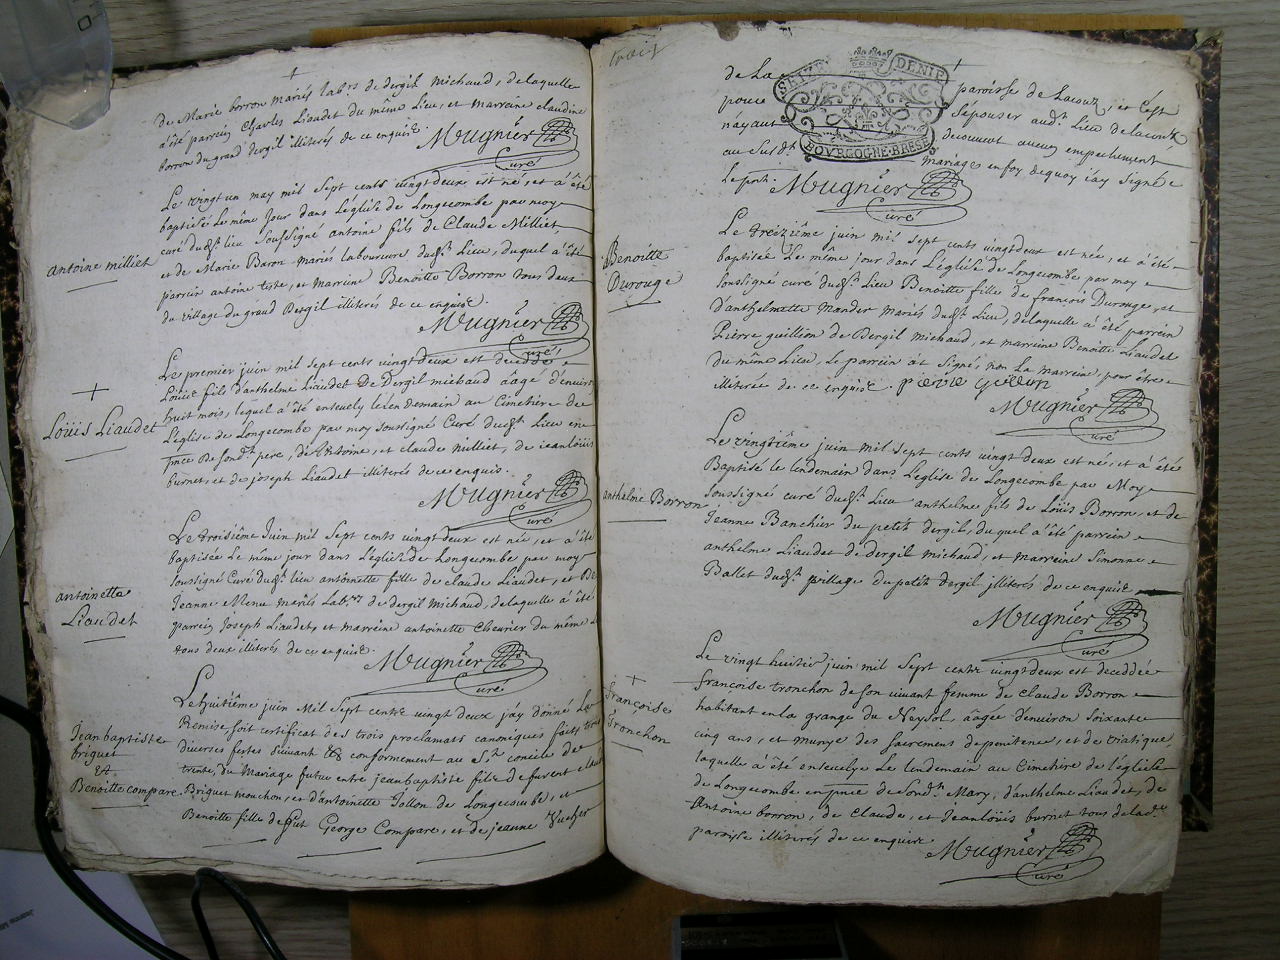 de Marie borron mariés lab.rs de dergil michaud, de laquelle
a été parrein Charles Liaudet du même Lieu, et marreine claudine
borron du grand dergil illiterés de ce enquis.
Mugnier
Curé
Le vingt un may mil Sept cents vingt deux est né, et a été
baptisé Le même Jour dans L'église de Longecombe par moy
curé dud.t lieu Soussigné antoine fils de Claude Milliet
et de Marie Baron mariés laboureurs dud.t Lieu, duquel a été
parrein antoine teste, et Marreine Benoitte Borron tous deux
du village du grand Dergil illiterés de ce enquis.
antoine milliet
Mugnier
Curé
Le premier juin mil sept cents vingt deux est decedde
Loüis fils d'anthelme Liaudet De Dergil michaud âagé d'environ
huit mois, lequel a été ensevely le lendemain au Cimetiere de
L'église de Longecombe par moy soussigné Curé dud.t Lieu en
pnce de son d.t pere, d'Antoine, et claude milliet, de jeanloüis
burnet, et de joseph Liaudet illiterés de ce enquis.
Loüis Liaudet
Mugnier
Curé
Le troisiême Juin mil Sept cents vingt deux est née, et a été
baptisée Le même jour dans L'église de Longecombe par moy
soussigné Curé dud.t lieu antoinette fille de claude Liaudet, et De
Jeanne Menu mariés Lab.rs de dergil michaud, de laquelle a été
parrein Joseph Liaudet, et marreine antoinette Chevrier du même L
tous deux illiterés de ce enquis.
antoinette
Liaudet
Mugnier
Curé
Le huitiême juin Mil Sept cents vingt deux j'ay donné Le
Remise, soit certificat des trois proclamats canoniques faits trois
diverses festes suivant & conformement au S.t concile de
trente, du Mariage futur entre jean baptiste fils de fuvent Claude
Briguet mouchon, et d'antoinette Jollon de Longecombe, et
Benoitte fille de fut George Compare, et de jeanne Vucher
Jean baptiste
briguet
Et
Benoitte compare
trois
SEIZE DENIE
BOVRGOGNE·BRESE
de La paroisse de Lacoux, et c'est
pour s'épouser aud.t Lieu de lacoux
n'ayant decouvert aucun empechement
au Susd.t mariage en foy de quoy j'ay Signé
Mugnier
Curé
Le treiziême juin mil sept cents vingt deux est née, et a été
baptisée Le même jour dans L'église de Longecombe par moy
soussigné curé dud.t Lieu Benoitte fille de françois Durouge, et
d'anthelmette Mander mariés dud.t Lieu, de laquelle a été parrein
Pierre guillion de Dergil michaud, et marreine Benoitte Liaudet
du même Lieu, Le parrein a Signé, non La marreine pour être
illiterée de ce enquise. pierre gullion
Benoitte
Durouge
Mugnier
Curé
Le vingtiême juin mil sept cents vingt deux est né, et a été
Baptisé le lendemain dans L'église de Longecombe par Moy
soussigné curé dud.t Lieu anthelme fils de Loüis Borron, et de
Jeanne Banchier du petit dergil, duquel a été parrein
anthelme Liaudet de Dergil michaud, et marreine Simonne
Ballet dud.t village du petit dergil illiterés de ce enquis
anthelme Borron
Mugnier
Curé
Le vingt huitie juin mil Sept cents vingt deux est deceddée
françoise tronchon de son vivant femme de Claude Borron
habitant en la grange du Neysol, âagée d'environ soixante
cinq ans, et munye des sacrements de penitence, et de viatique
laquelle a été ensevelye Le lendemain au Cimetiere de l'église
de Longecombe en pnce de Son d.t Mary, d'anthelme Liaudet, de
Antoine borron, de Claude, et Jeanlouis burnet tous de lad.te
paroisse illiterés de ce enquis.
françoise
tronchon
Mugnier
Curé